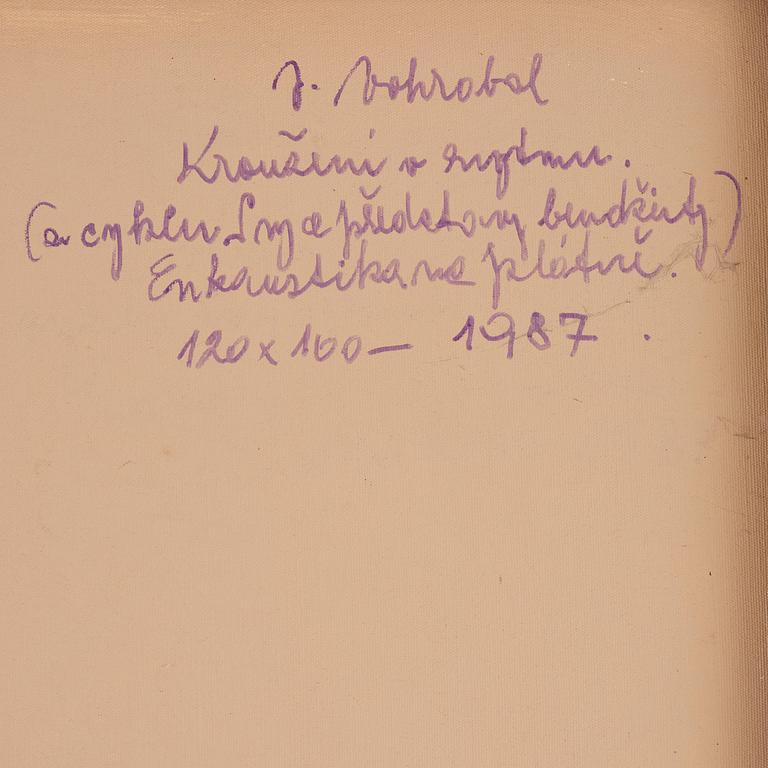 J. Vohrobal
Kroužení v rytmu.
(z cyklu Sny a představy bendžisty)
Enkaustika na plátně.
120 x 160 — 1987 .